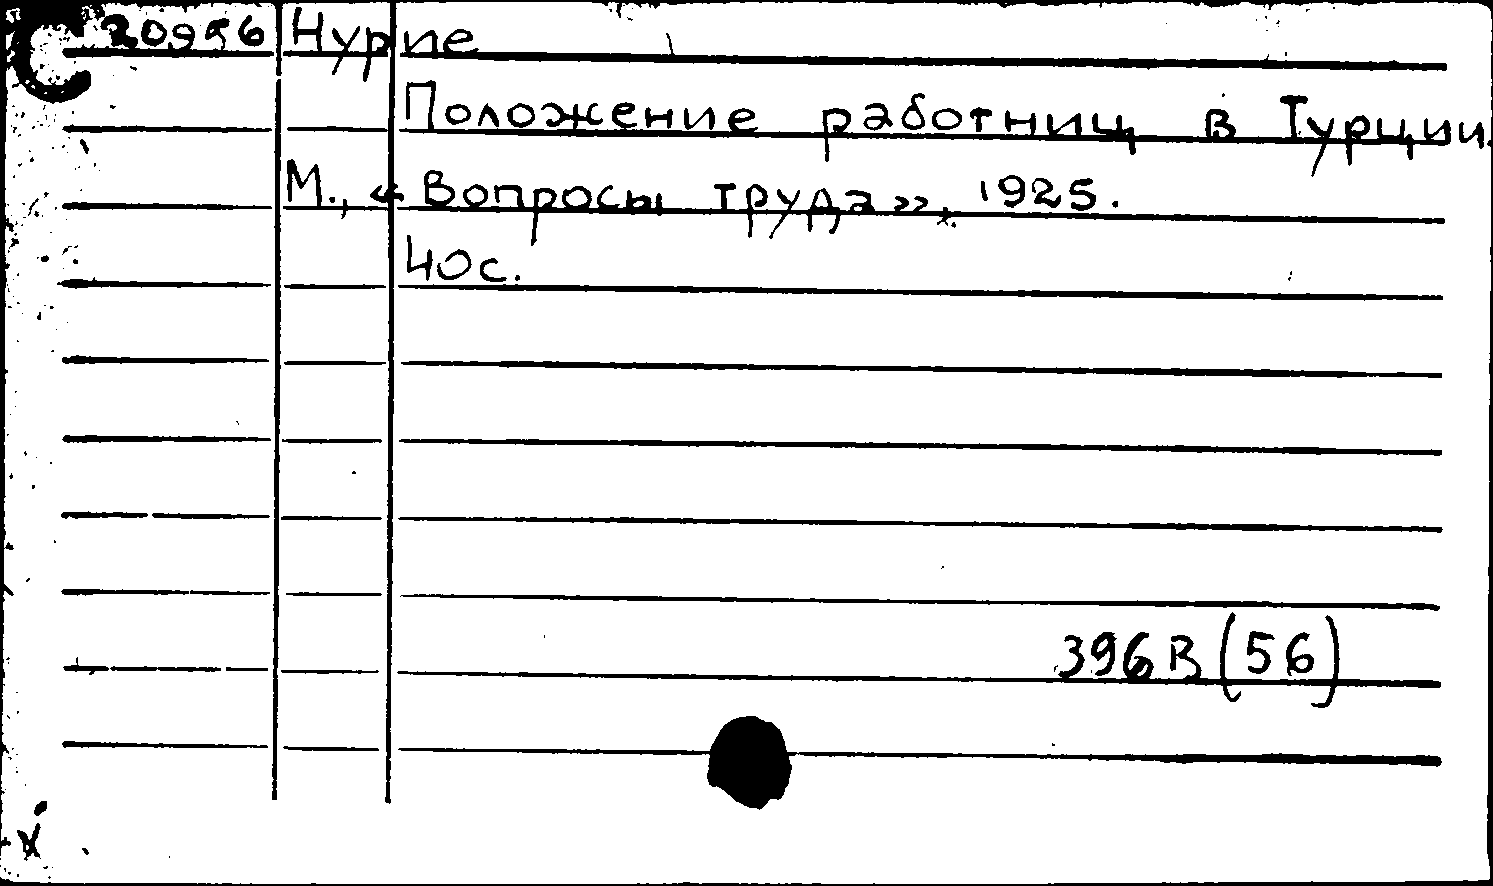 20956 Нурие
Положение работниц в Турции.
М., «Вопросы труда», 1925.
40с.
396В(56)